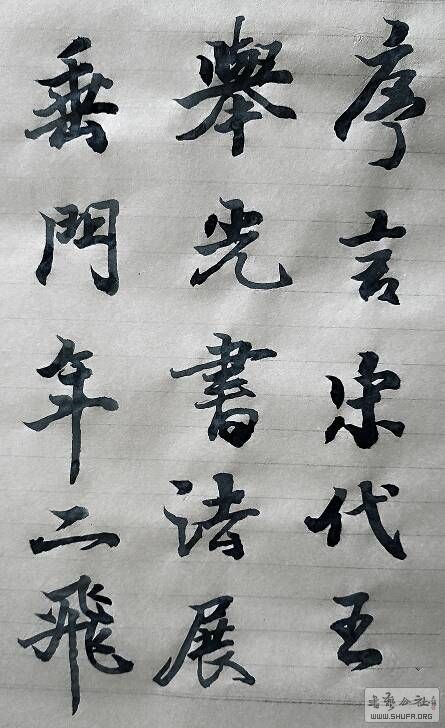 序言宋代王
舉光書法展
垂門年二飛
书艺公社
WWW.SHUFA.ORG